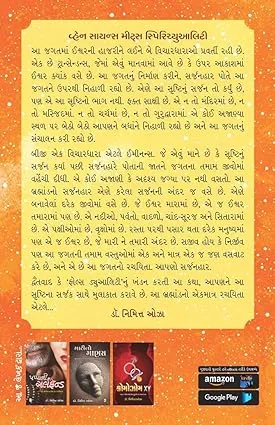 વ્હેન સાયન્સ મીટ્સ સ્પિરિચ્યુઆલિટી
આ જગતમાં ઈશ્વરની હાજરીને લઈને બે વિચારધારાઓ પ્રવર્તી રહી છે.
એક છે ટ્રાન્સેન્ડન્સ, જેમાં એવું માનવામાં આવે છે કે ઉપર આકાશમાં
ઈશ્વર ક્યાંક વસે છે. આ જગતનું નિર્માણ કરીને, સર્જનહાર પોતે આ
જગતને ઉપરથી નિહાળી રહ્યો છે. એણે આ સૃષ્ટિનું સર્જન તો કર્યું છે,
પણ એ આ સૃષ્ટિનો ભાગ નથી. ફક્ત સાક્ષી છે. એ ન તો મંદિરમાં છે, ન
તો મસ્જિદમાં. ન તો ચર્ચમાં છે, ન તો ગુરુદ્વારામાં. એ કોઈ અજાણ્યા
સ્થળ પર બેઠો બેઠો આપણને બધાંને નિહાળી રહ્યો છે અને આ જગતનું
સંચાલન કરી રહ્યો છે.
બીજી એક વિચારધારા એટલે ઈમીનન્સ. જે એવું માને છે કે સૃષ્ટિનું
સર્જન કર્યા પછી સર્જનહારે પોતાની જાતને જગતના તમામ જીવોમાં
વહેંચી દીધી. એ કોઈ અજાણી કે અદૃશ્ય જગ્યા પર નથી વસતો. આ
બ્રહ્માંડનો સર્જનહાર એણે કરેલા સર્જનની અંદર જ વસે છે. એણે
બનાવેલા દરેક જીવોમાં વસે છે. જે ઈશ્વર મારામાં છે, એ જ ઈશ્વર
તમારામાં પણ છે. એ નદીઓ, પર્વતો, વાદળો, ચાંદ-સૂરજ અને સિતારામાં
છે. એ પક્ષીઓમાં છે, વૃક્ષોમાં છે. રસ્તા પરથી પસાર થતા દરેક મનુષ્યમાં
પણ એ જ ઈશ્વર છે, જે મારી ને તમારી અંદર છે. સજીવ હોય કે નિર્જીવ
પણ આ જગતની તમામ વસ્તુઓમાં એક અને માત્ર એક જ જણ વસવાટ
કરે છે, અને એ છે આ જગતનો રચયિતા. આપણો સર્જનહાર.
દ્વૈતવાદ કે 'ફોલ્સ ડ્યુઆલિટી'નું ખંડન કરતી આ કથા, આપણને આ
સૃષ્ટિના સર્જક સાથે મુલાકાત કરાવે છે. આ બ્રહ્માંડનો એકમાત્ર રચયિતા
એટલે...
ડૉ. નિમિત્ત ઓઝા
આ જ લેખક દ્વારા...
પપ્પાની ગર્લફ્રેન્ડ
માટીનો માણસ
ક્રોમોઝોમ XY
amazon
Google Play